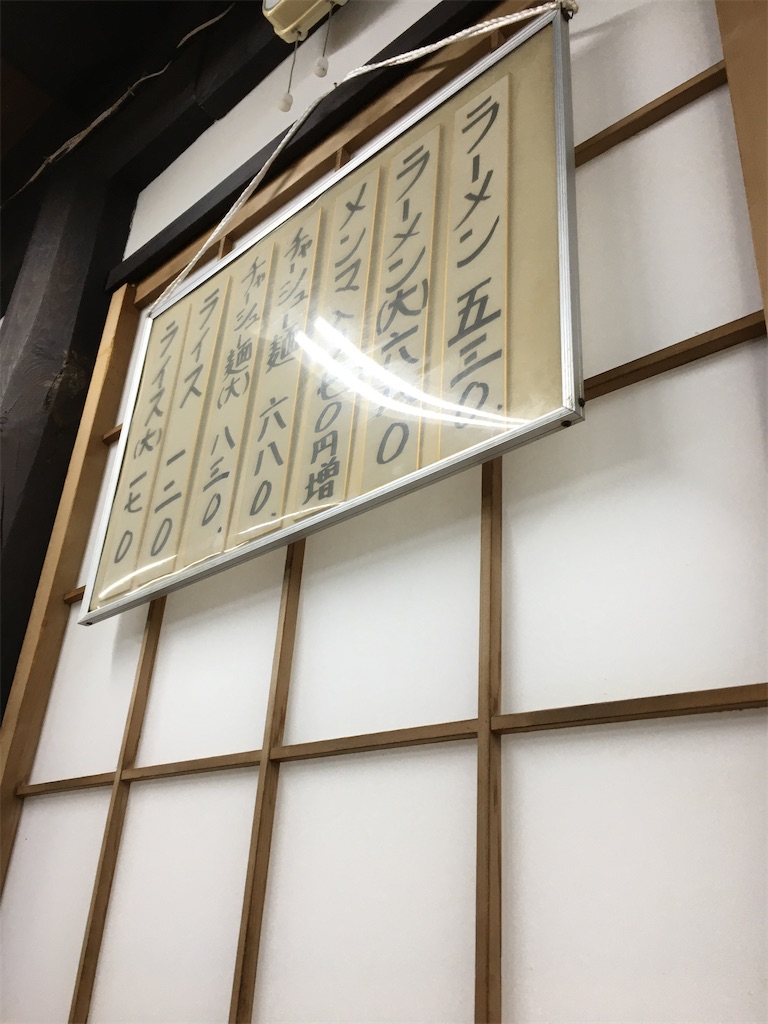 ラーメン 五三〇.
ラーメン(大) 六 〇
メンマ 〇円増
チャーシュー麺 六八〇.
チャーシュー麺(大) 八三〇.
ライス 一二〇
ライス(大) 一七〇